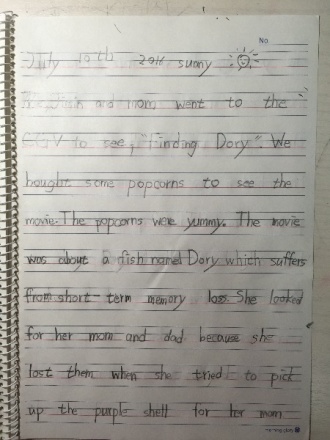 No
July 10th 2016 sunny
and mom went to the
CGV to see, "Finding Dory". We
bought some popcorns to see the
movie. The popcorns were yummy. The movie
was about a fish named Dory which suffers
from short-term memory loss. She looked
for her mom and dad because she
lost them when she tried to pick
up the purple shell for her mom